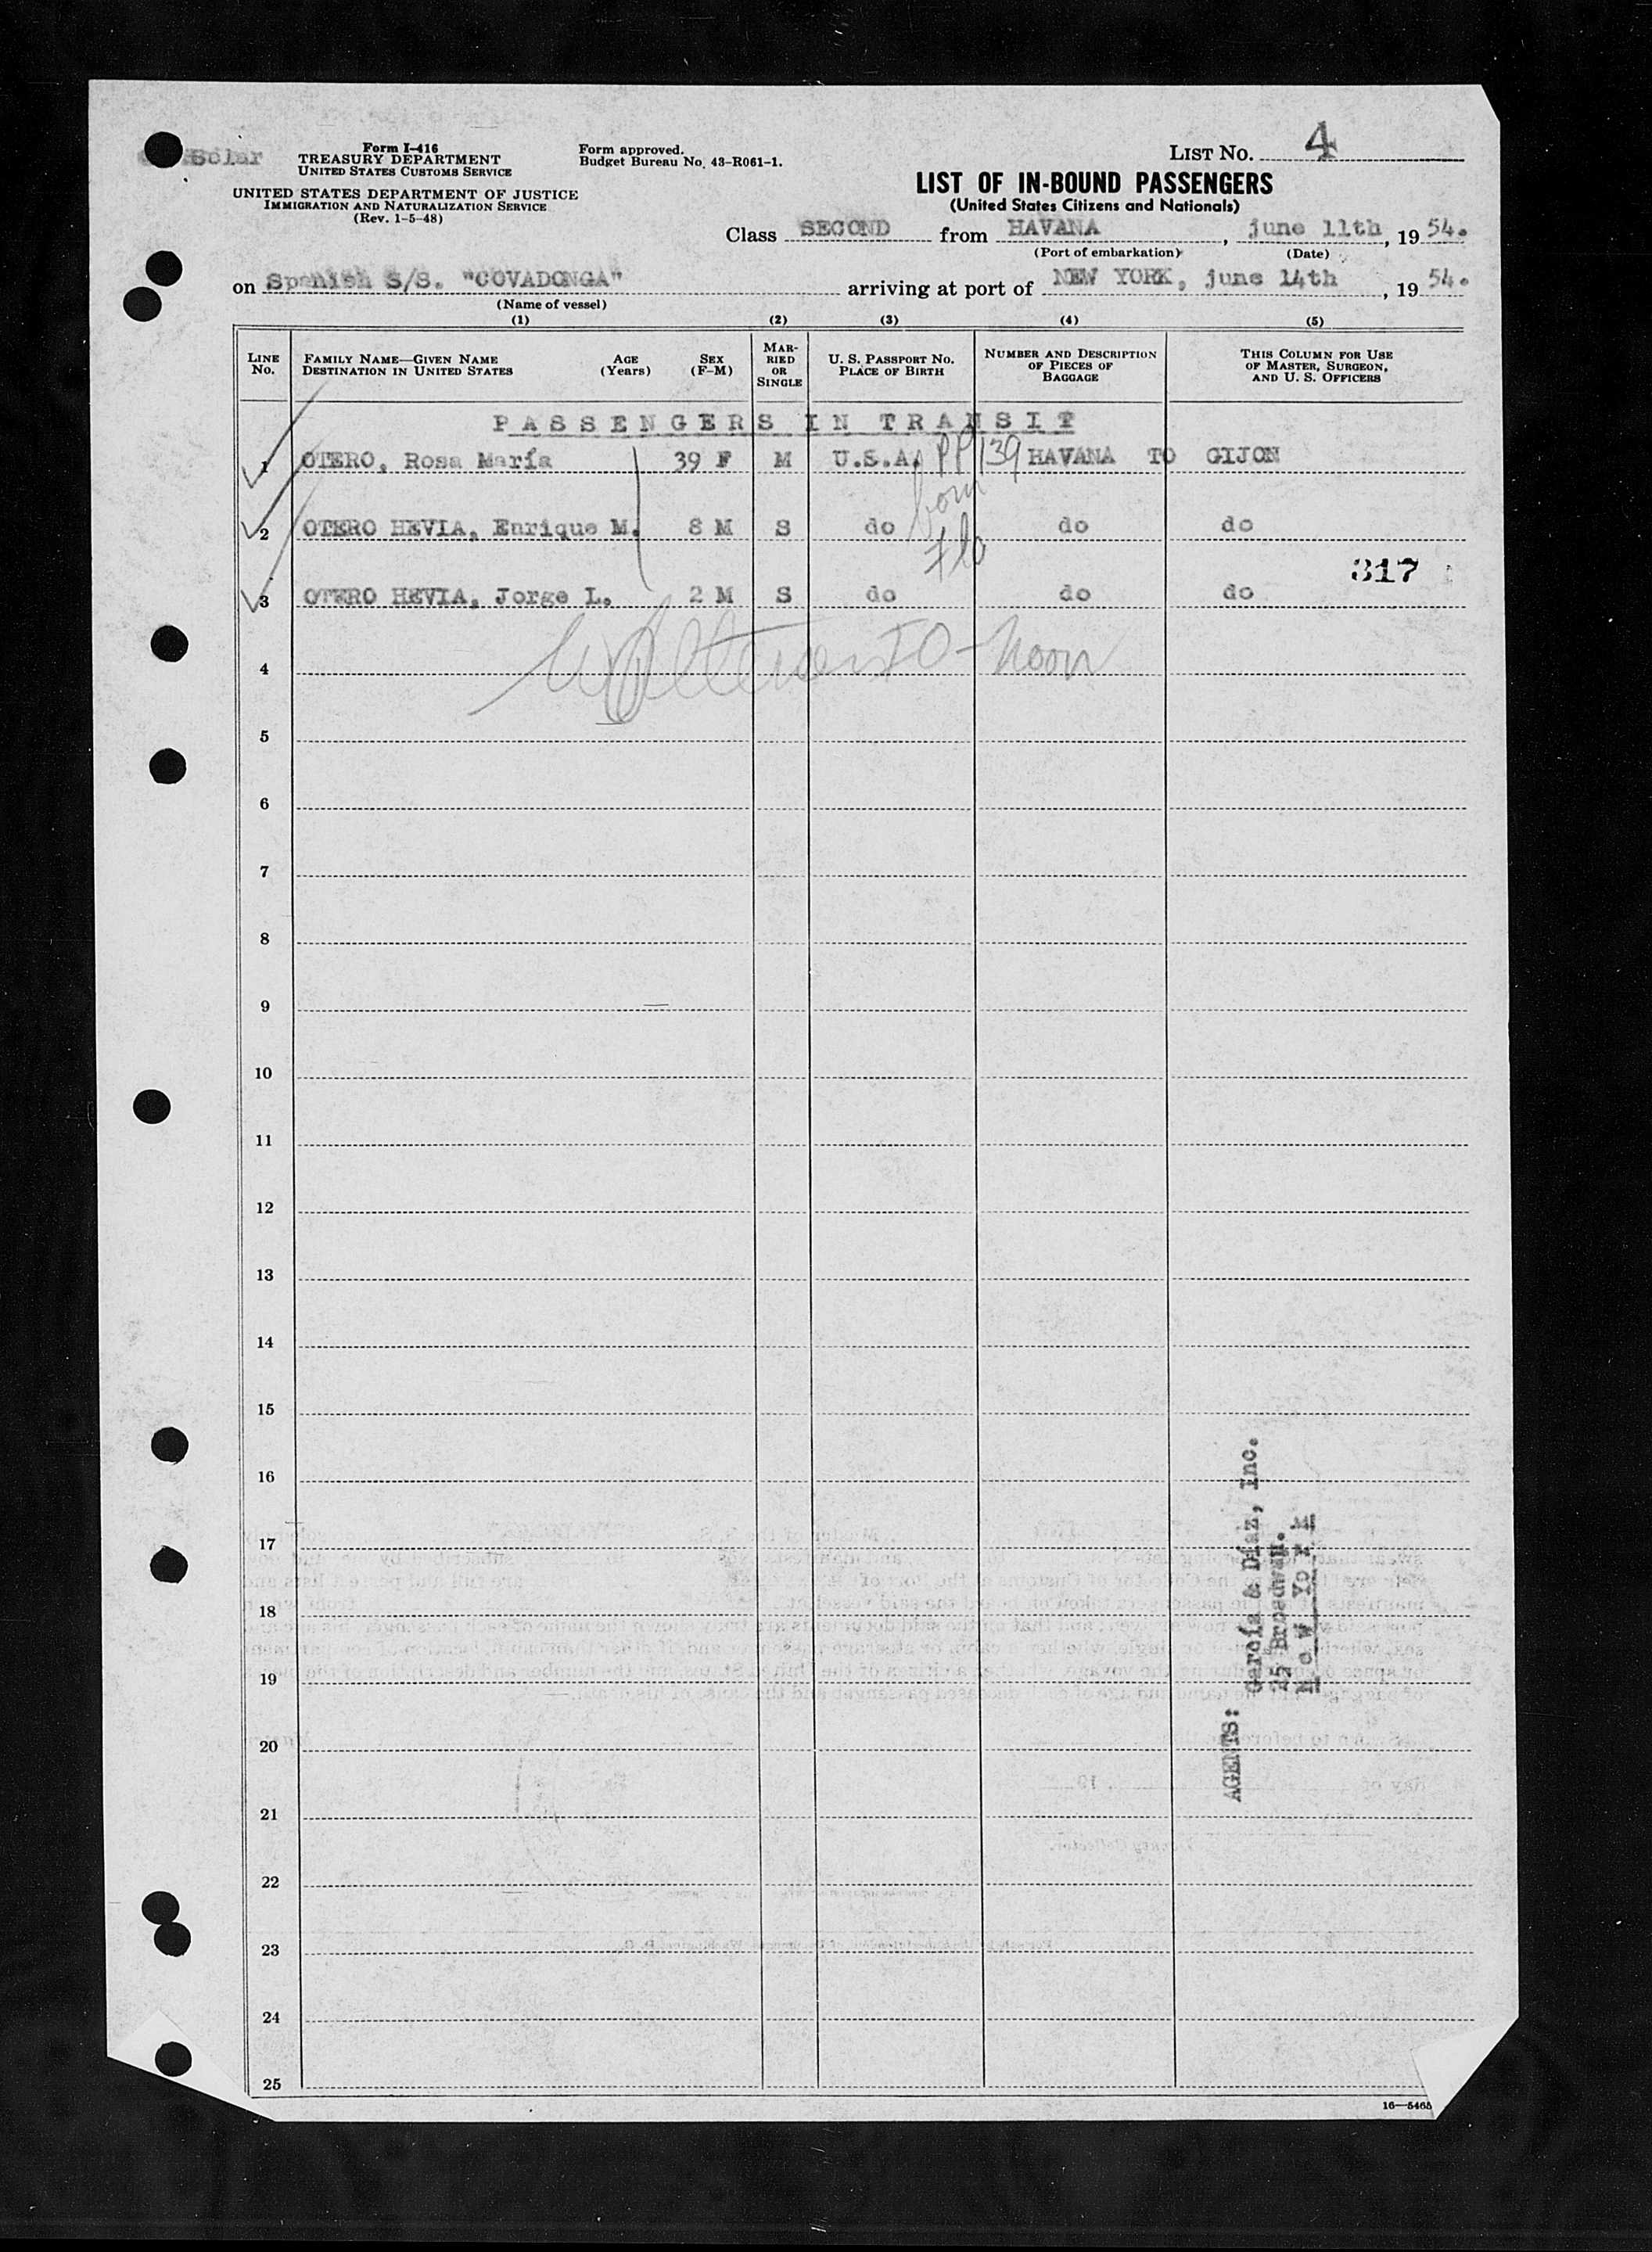 Solar
Form I-416
TREASURY DEPARTMENT
UNITED STATES CUSTOMS SERVICE
UNITED STATES DEPARTMENT OF JUSTICE
IMMIGRATION AND NATURALIZATION SERVICE
(Rev. 1-5-48)
Form approved.
Budget Bureau No. 43-R061-1.
LIST No. 4
LIST OF IN-BOUND PASSENGERS
(United States Citizens and Nationals)
Class SECOND from HAVANA, june 11th, 1954.
(Port of embarkation) (Date)
on Spanish S/S. "COVADONGA" arriving at port of NEW YORK, june 14th, 1954.
(Name of vessel)
(1) (2) (3) (4) (5)
LINE No.
FAMILY NAME—GIVEN NAME
DESTINATION IN UNITED STATES
AGE (Years)
SEX (F-M)
MARRIED OR SINGLE
U. S. PASSPORT No.
PLACE OF BIRTH
NUMBER AND DESCRIPTION OF PIECES OF BAGGAGE
THIS COLUMN FOR USE OF MASTER, SURGEON, AND U. S. OFFICERS
PASSENGERS IN TRANSIT
1 OTERO, Rosa María 39 F M U.S.A. PP 139 HAVANA TO GIJON
born
2 OTERO HEVIA, Enrique M. 8 M S do do do
Flo
317
3 OTERO HEVIA, Jorge L. 2 M S do do do
4
noon
5
6
7
8
9
10
11
12
13
14
15
16
17
18
19
20
21
22
23
24
25
AGENTS: García & Díaz, Inc.
25 Broadway.
N e W Y o r k
16—5465